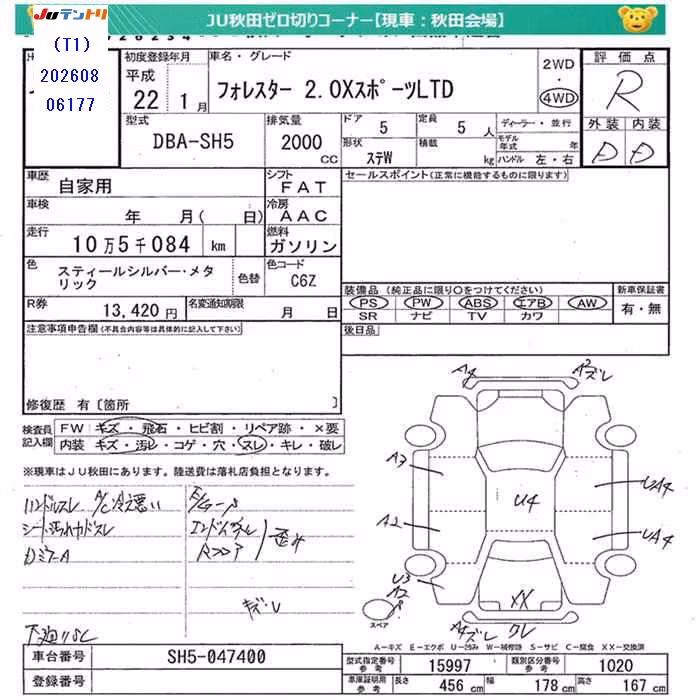 JUテントリ
JU秋田ゼロ切りコーナー【現車：秋田会場】
(T1)
202608
06177
初度登録年月
平成
22 1月
車名・グレード
フォレスター 2.0XスポーツLTD
2WD
・
4WD
評価点
R
外装 内装
D D
型式
DBA-SH5
排気量
2000
CC
ドア 5
定員 5人
形状 ステW
積載 kg
ディーラー・並行
モデル年式 年
ハンドル 左・右
車歴
自家用
シフト
FAT
車検
年 月( 日)
冷房
AAC
走行
10万5千084 km
燃料
ガソリン
色
スティールシルバー・メタリック
色替
色コード
C6Z
R券
13,420円
名変通知期限
月 日
セールスポイント(正常に機能するものに限ります)
装備品(純正品に限り○をつけてください)
PS PW ABS エアB AW
SR ナビ TV カワ
新車保証書
有・無
後日品
注意事項申告欄(不具合内容等は具体的に記入して下さい)
修復歴 有〔箇所 〕
検査員
記入欄
FW キズ・飛石・ヒビ割・リペア跡・×要
内装 キズ・汚レ・コゲ・穴・スレ・キレ・破レ
※現車はJU秋田にあります。陸送費は落札店負担となります。
ハンドルスレ A/C冷え悪い
エンドパネル
Rフロア
歪み
キズレ
A4
A2ズレ
A3
A2
U3
U4
UA4
UA4
XX
A4ズレ
クレ
スペア
A－キズ E－エクボ U－凹み W－補修跡 S－サビ C－腐食 XX－交換済
車台番号
SH5-047400
登録番号
型式指定番号
参考
15997
類別区分番号
参考
1020
車庫証明用
参考
長さ 456cm
幅 178cm
高さ 167cm